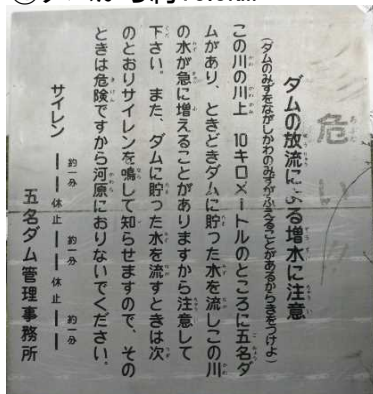 危い
ダムの放流による増水に注意
(ダムのみずをながしかわのみずがふえることがあるからきをつけよ)
この川の川上 10キロメートルのところに五名ダ
ムがあり、ときどきダムに貯った水を流しこの川
の水が急に増えることがありますから注意して
下さい。また、ダムに貯った水を流すときは次
のとおりサイレンを鳴して知らせますので、その
ときは危険ですから河原におりないでください。
サイレン 約一分 休止 約一分 休止 約一分
五名ダム管理事務所